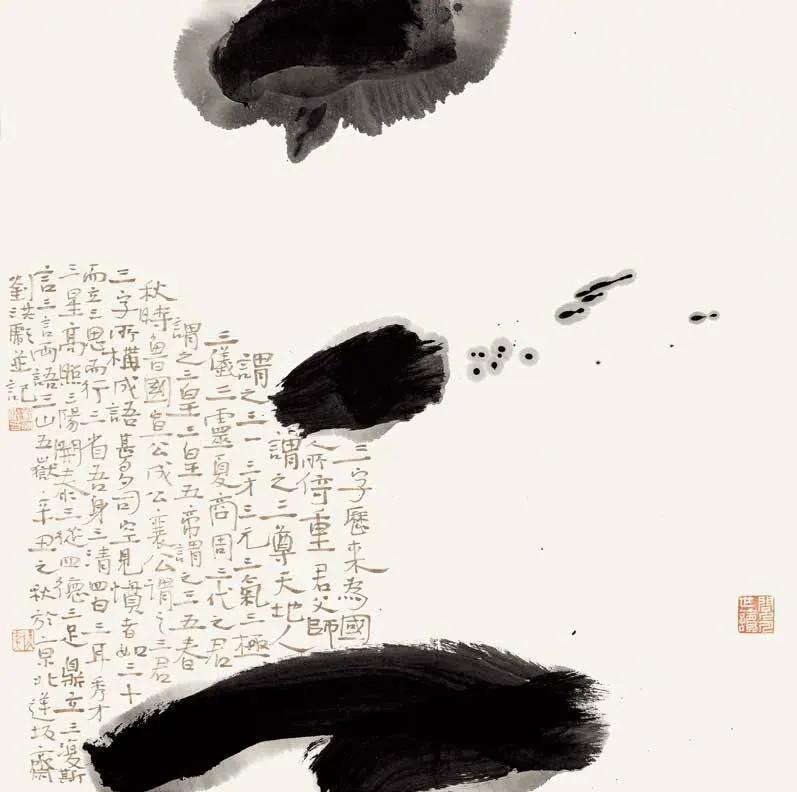 三字歷來為國
人所倚重君父師
謂之三尊天地人
謂之三一三才三元三氣三極
三儀三靈夏商周三代之君
謂之三皇三皇五帝謂之三五春
秋時魯國宣公成公襄公謂之三君
三字所構成語甚多司空見慣者如三十
而立三思而行三省吾身三清四白三耳秀才
三星高照三陽開泰三從四德三足鼎立三復斯
言三言兩語三山五嶽辛丑之秋於京北逆坂齋
劉洪彪並記